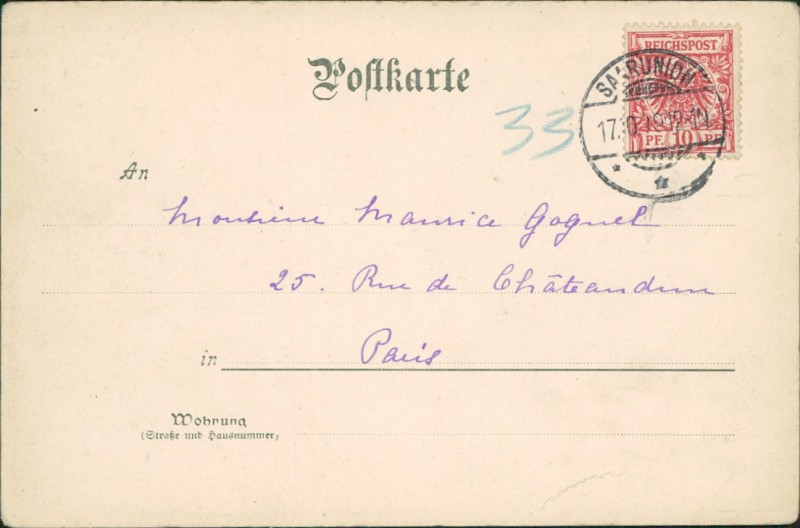 REICHSPOST
PF. 10 PF.
SAARUNION
17.10
Postkarte
33
An
Monsieur Maurice Goguel
25. Rue de Châteaudun
in Paris
Wohnung
(Straße und Hausnummer)